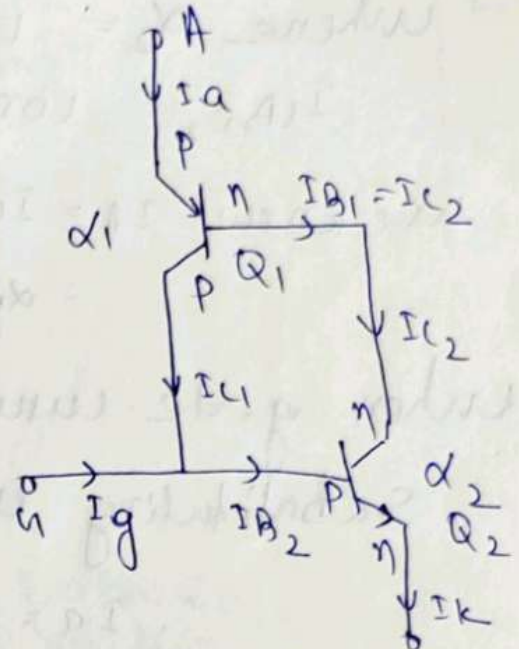 A
Ia
P
α1
n
IB1 = IC2
P
Q1
IC1
IC2
n
G
Ig
IB2
P
α2
Q2
n
Ik